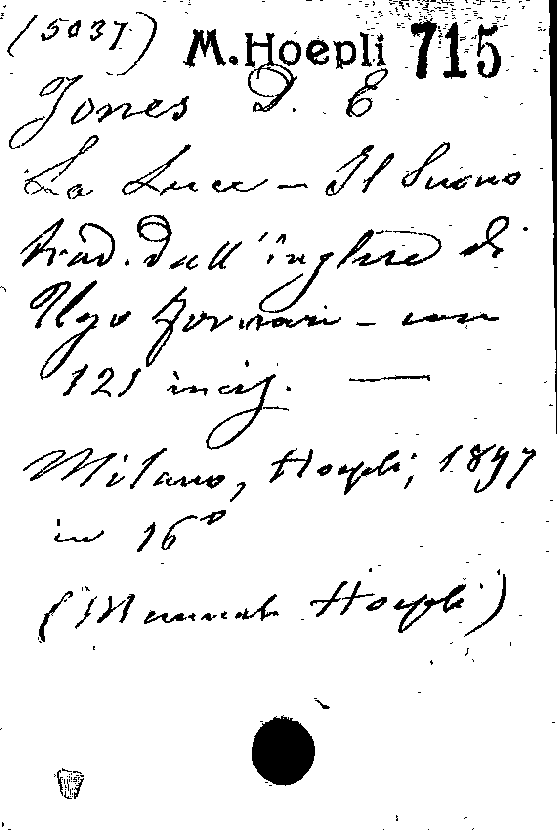 (5037) M.Hoepli 715
Jones D. E
La Luce - Il Suono
trad. dall'inglese di
Ugo Fornari - con
121 incis.
Milano, Hoepli, 1897
in 16°
(Manuali Hoepli)